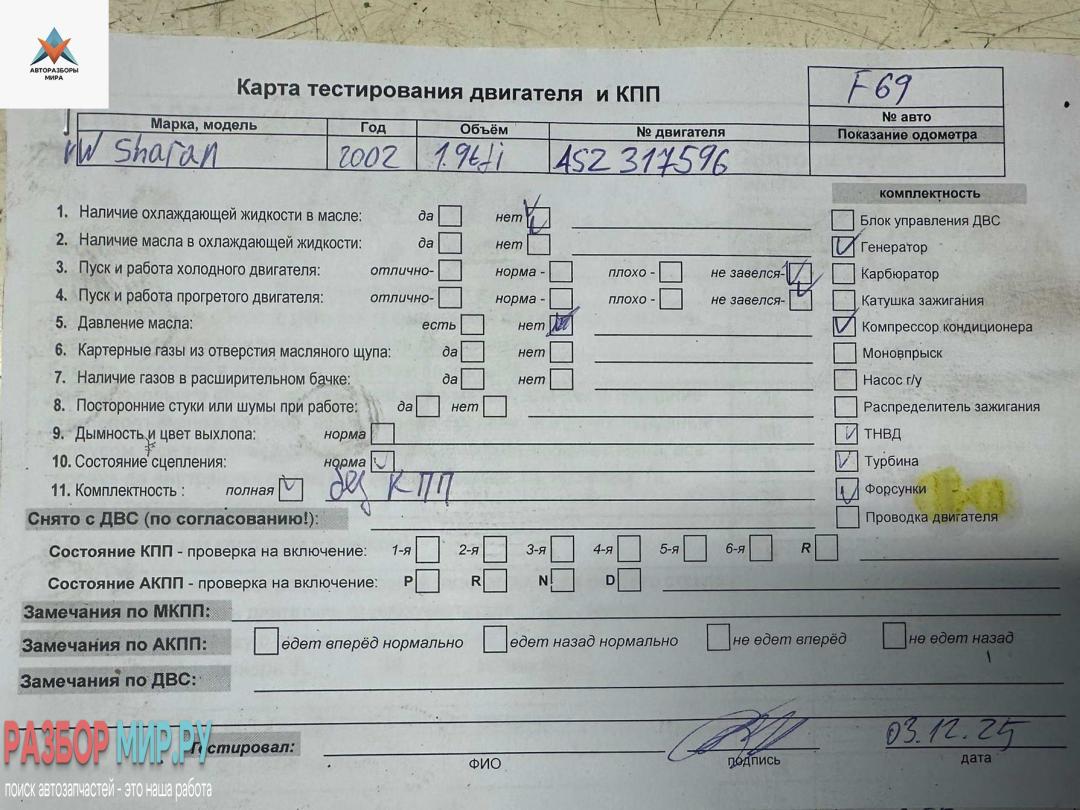 АВТОРАЗБОРЫ
МИРА
Карта тестирования двигателя и КПП
F69
№ авто
Марка, модель Год Объём № двигателя Показание одометра
VW Sharan 2002 1.9tdi ASZ 317596
комплектность
1. Наличие охлаждающей жидкости в масле: да нет
Блок управления ДВС
2. Наличие масла в охлаждающей жидкости: да нет
Генератор
3. Пуск и работа холодного двигателя: отлично- норма - плохо - не завелся-
Карбюратор
4. Пуск и работа прогретого двигателя: отлично- норма - плохо - не завелся-
Катушка зажигания
5. Давление масла: есть нет
Компрессор кондиционера
6. Картерные газы из отверстия масляного щупа: да нет
Моновпрыск
7. Наличие газов в расширительном бачке: да нет
Насос г/у
8. Посторонние стуки или шумы при работе: да нет
Распределитель зажигания
9. Дымность и цвет выхлопа: норма
ТНВД
10. Состояние сцепления: норма
Турбина
11. Комплектность : полная без КПП
Форсунки
Снято с ДВС (по согласованию!):
Проводка двигателя
Состояние КПП - проверка на включение: 1-я 2-я 3-я 4-я 5-я 6-я R
Состояние АКПП - проверка на включение: P R N D
Замечания по МКПП:
Замечания по АКПП: едет вперёд нормально едет назад нормально не едет вперёд не едет назад
Замечания по ДВС:
РАЗБОР МИР.РУ
поиск автозапчастей - это наша работа
Тестировал:
03.12.25
ФИО подпись дата